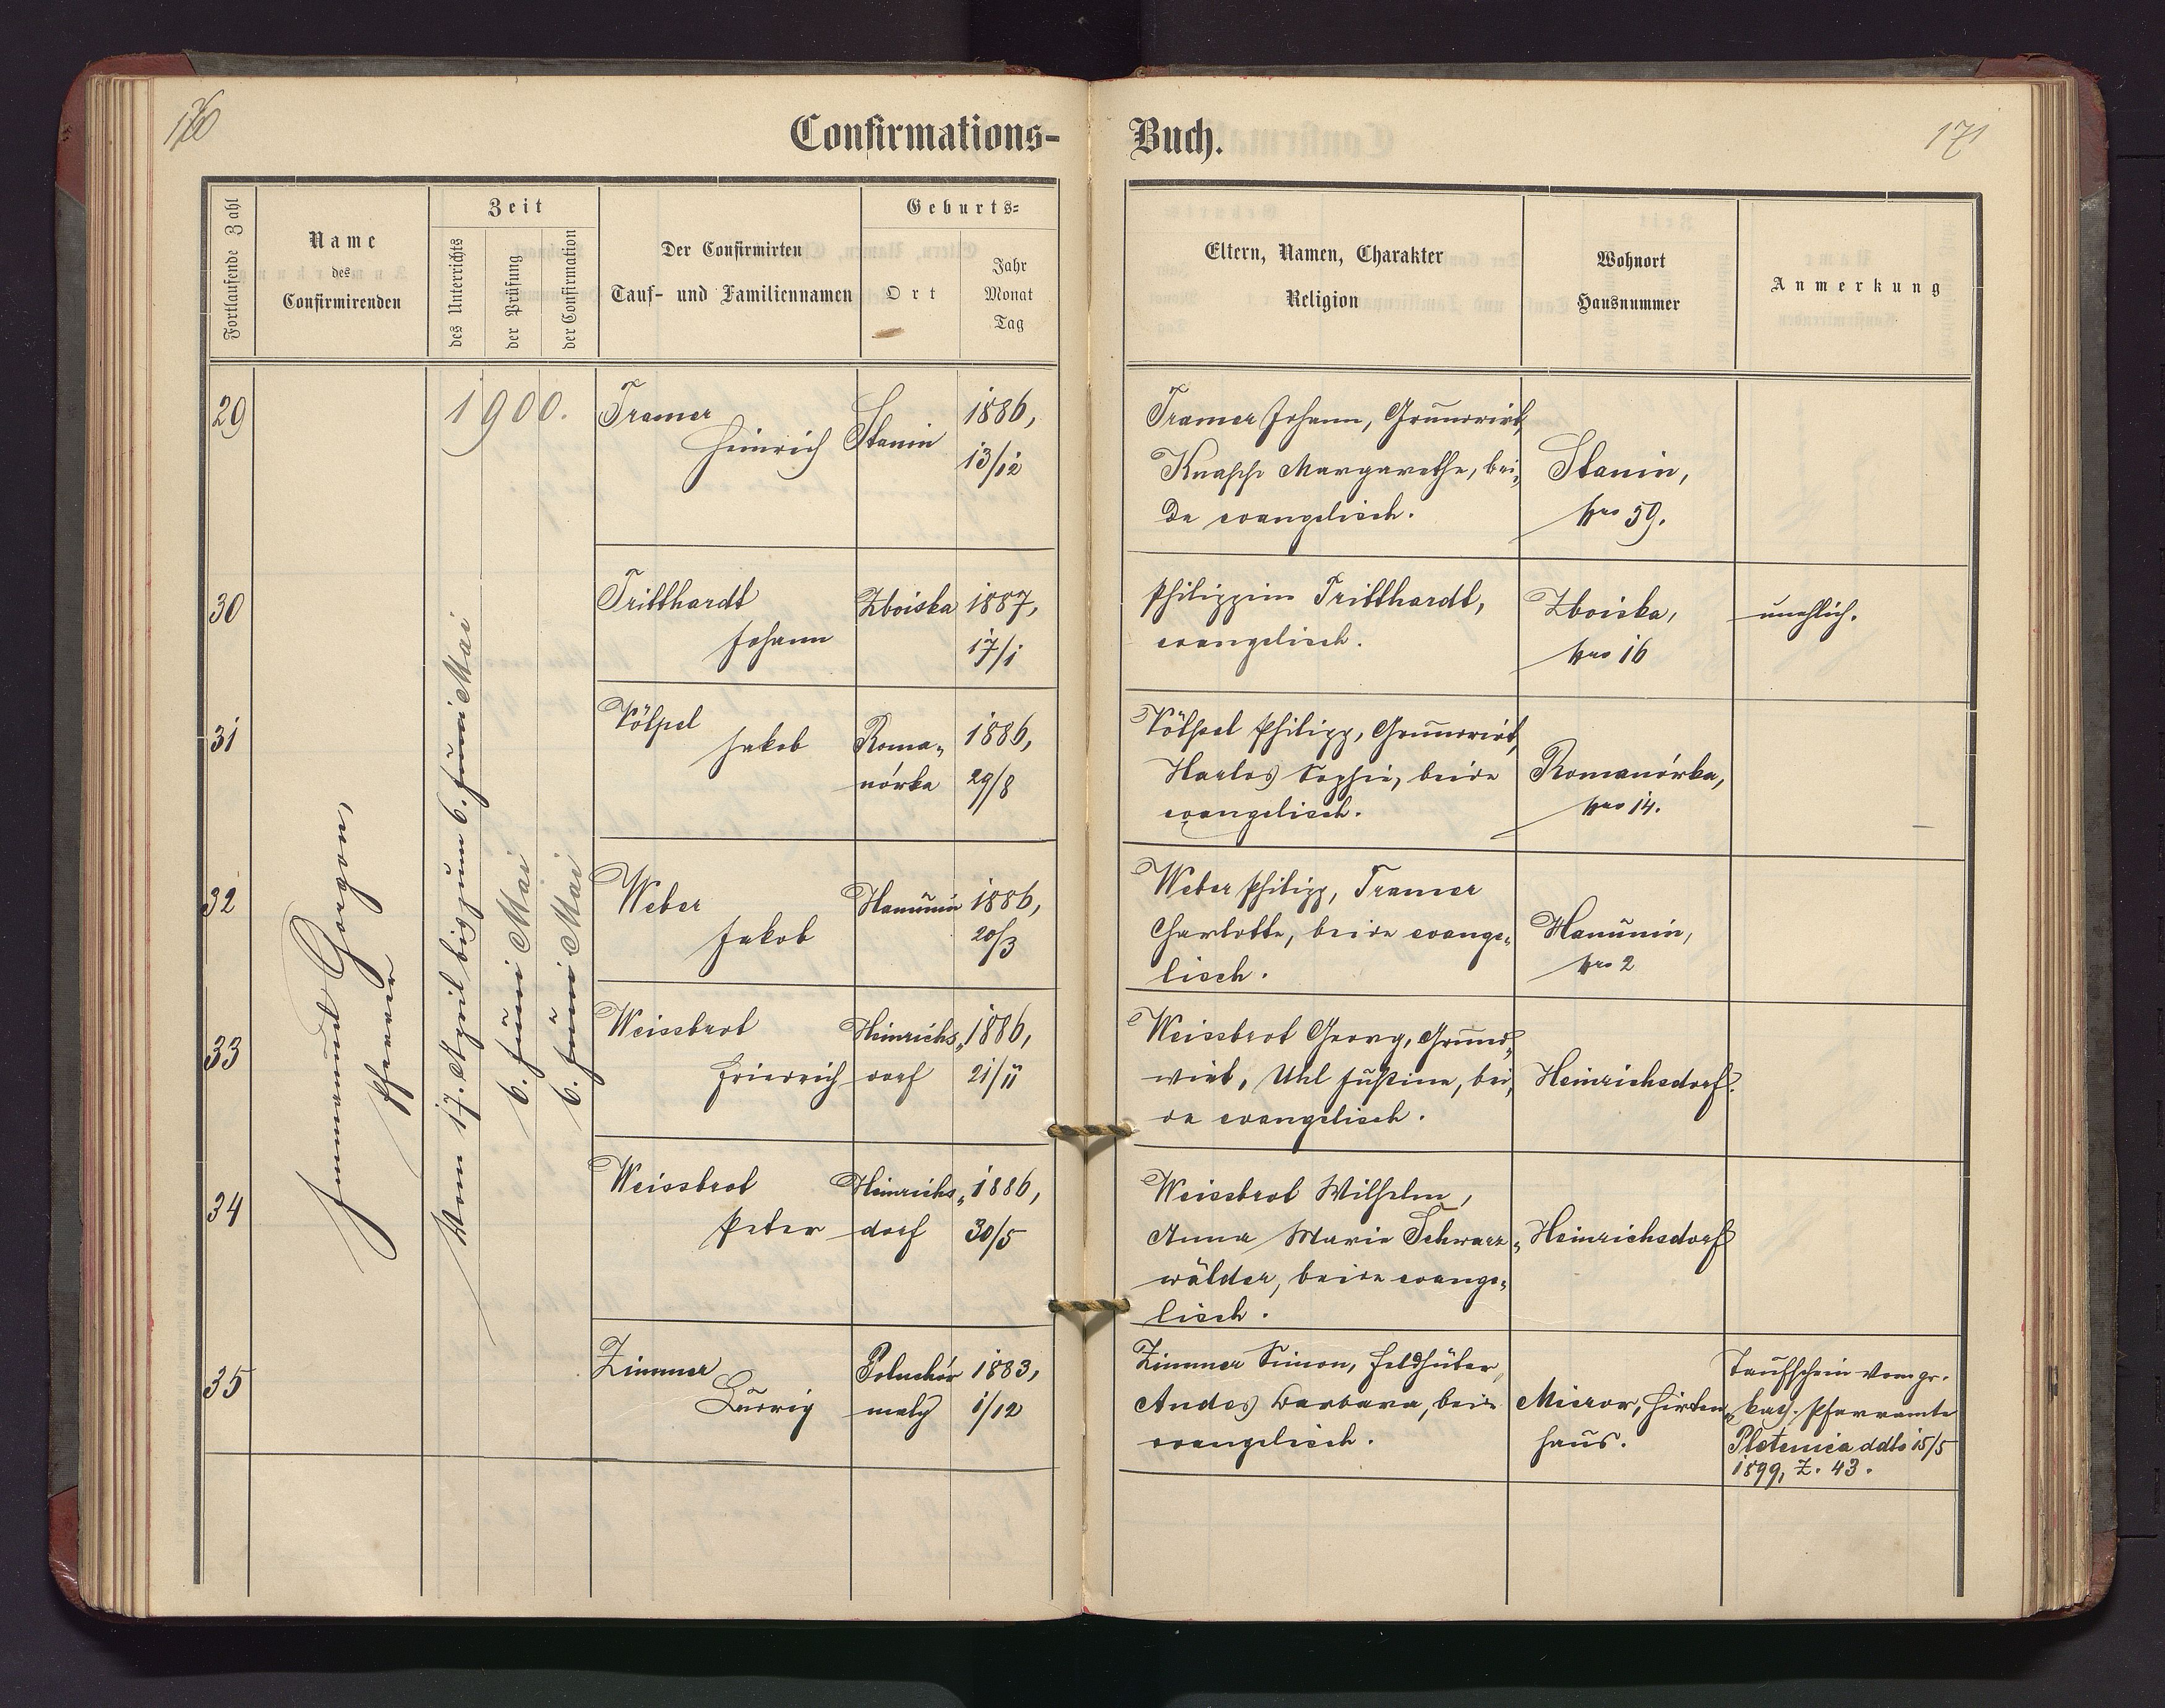 170
171
Confirmations-Buch.
Fortlaufende Zahl
Name
des
Confirmirenden
Zeit
des Unterrichts
der Prüfung
der Confirmation
Der Confirmirten
Tauf- und Familiennamen
Geburts-
Ort
Jahr
Monat
Tag
Eltern, Namen, Charakter
Religion
Wohnort
Hausnummer
Anmerkung
1900.
Pfarrer
Vom 17. April bis zum 6. Juni Mai
6. Juni Mai
6. Juni Mai
29
Tramer
Heinrich
Stanin
1886,
13/12
Tramer Johann, Grundwirt,
Knapp Margarethe, bei„
de evangelisch.
Stanin,
Nro 59.
30
Tritthardt
Johann
Zboiska
1887,
17/1
Philippine Tritthardt,
evangelisch.
Zboiska,
Nro 16
unehlich.
31
Völpel
Jakob
Roma„
nówka
1886,
29/8
Völpel Philipp, Grundwirt,
Harlos Sophie, beide
evangelisch.
Romanówka,
Nro 14.
32
Weber
Jakob
Hanunin
1886,
20/3
Weber Philipp, Tramer
Charlotte, beide evange„
lisch.
Hanunin,
Nro 2
33
Weissbrot
Friedrich
Heinrichs„
dorf
1886,
21/11
Weissbrot Georg, Grund„
wirt, Uhl Justine, bei„
de evangelisch.
Heinrichsdorf.
34
Weissbrot
Peter
Heinrichs„
dorf
1886,
30/5
Weissbrot Wilhelm,
Anna Marie Schwarz„
wälder, beide evange„
lisch.
Heinrichsdorf
35
Zimmer
Ludwig
Poluchów
maly
1883,
1/12
Zimmer Simon, Feldhüter,
Andes Barbara, beide
evangelisch.
Hirten„
haus.
Taufschein vom gr.
kath. Pfarramte
Pletenica ddto 15/5
1899, Z. 43.